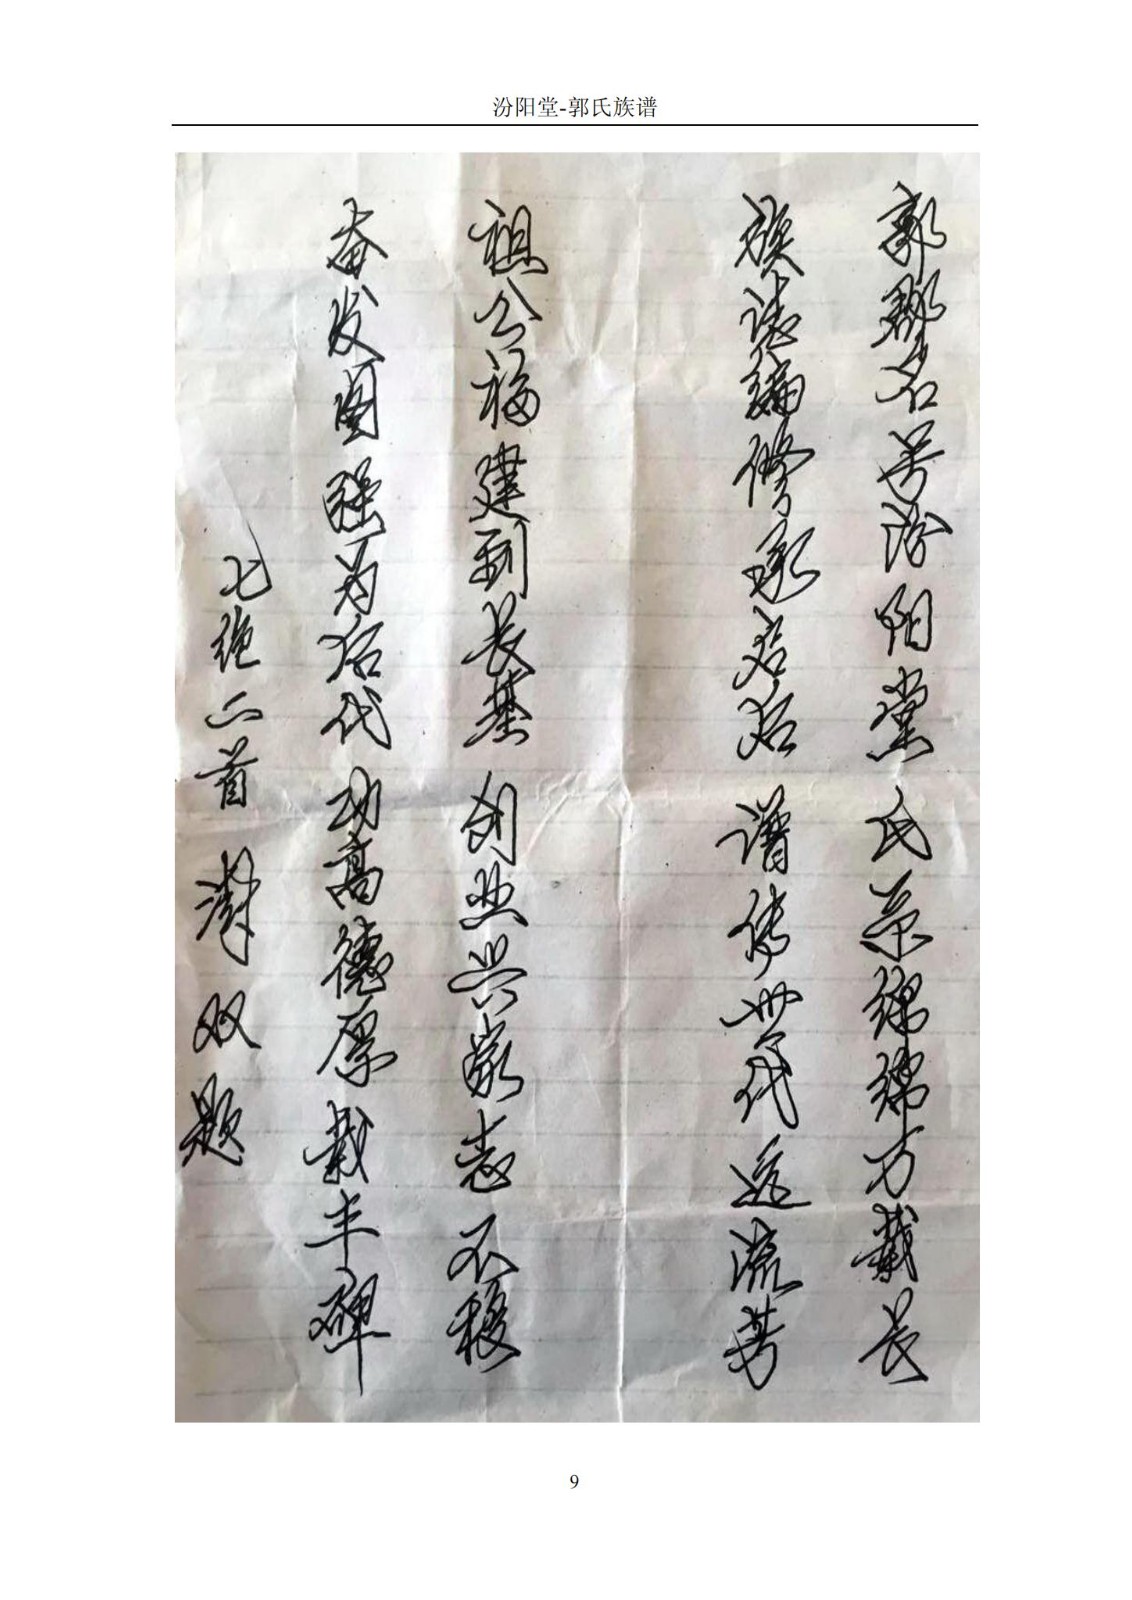 汾阳堂-郭氏族谱
郭郡名号汾阳堂 氏系绵绵万载长
族誌编修承启后 谱传世代远流芳
祖公福建到长基 创业兴家志不移
奋发图强为后代 功高德厚载丰碑
七绝二首 澍双题
9